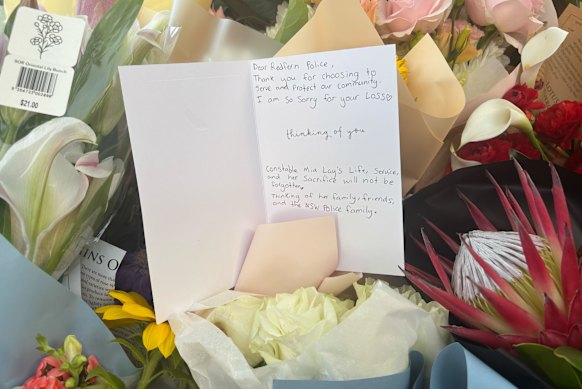 Dear Redfern Police,
Thank you for choosing to
serve and Protect our community.
I am so sorry for your Loss♡
thinking of you
Constable Mia Lay's Life, Service,
and her Sacrifice will not be
forgotten.
Thinking of her family, friends,
and the NSW Police family.
BOX Oriental Lily Bunch
$21.00